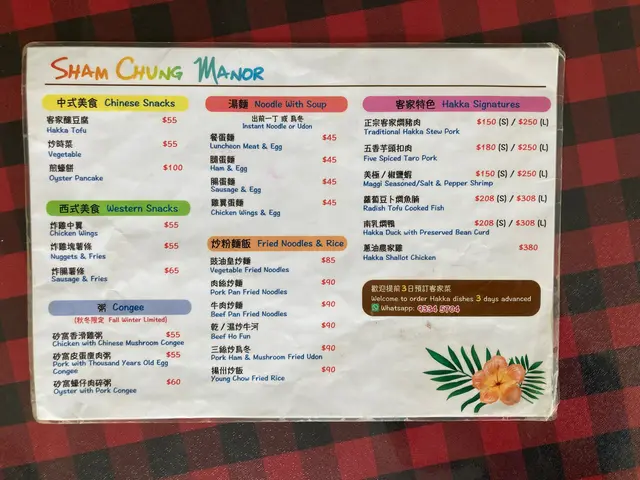 SHAM CHUNG MANOR
中式美食 Chinese Snacks
客家釀豆腐 $55
Hakka Tofu
炒時菜 $55
Vegetable
煎蠔餅 $100
Oyster Pancake
西式美食 Western Snacks
炸雞中翼 $55
Chicken Wings
炸雞塊薯條 $55
Nuggets & Fries
炸腸薯條 $65
Sausage & Fries
粥 Congee
(秋冬限定 Fall Winter Limited)
砂窩香滑雞粥 $55
Chicken with Chinese Mushroom Congee
砂窩皮蛋瘦肉粥 $55
Pork with Thousand Years Old Egg
Congee
砂窩蠔仔肉碎粥 $60
Oyster with Pork Congee
湯麵 Noodle With Soup
出前一丁 或 烏冬
Instant Noodle or Udon
餐蛋麵 $45
Luncheon Meat & Egg
腿蛋麵 $45
Ham & Egg
腸蛋麵 $45
Sausage & Egg
雞翼蛋麵 $45
Chicken Wings & Egg
炒粉麵飯 Fried Noodles & Rice
豉油皇炒麵 $85
Vegetable Fried Noodles
肉絲炒麵 $90
Pork Pan Fried Noodles
牛肉炒麵 $90
Beef Pan Fried Noodles
乾／濕炒牛河 $90
Beef Ho Fun
三絲炒烏冬 $90
Pork Ham & Mushroom Fried Udon
揚州炒飯 $90
Young Chow Fried Rice
客家特色 Hakka Signatures
正宗客家燜豬肉 $150 (S) / $250 (L)
Traditional Hakka Stew Pork
五香芋頭扣肉 $180 (S) / $250 (L)
Five Spiced Taro Pork
美極／椒鹽蝦 $150 (S) / $250 (L)
Maggi Seasoned/Salt & Pepper Shrimp
蘿蔔豆卜燜魚腩 $208 (S) / $308 (L)
Radish Tofu Cooked Fish
南乳燜鴨 $208 (S) / $308 (L)
Hakka Duck with Preserved Bean Curd
蔥油農家雞 $380
Hakka Shallot Chicken
歡迎提前3日預訂客家菜
Welcome to order Hakka dishes 3 days advanced
Whatsapp: 9334 5704